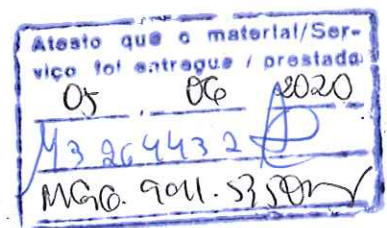 Atesto que o material/Ser-
viço foi entregue / prestado
05 06 2020
M3264432
MG6.9011.535